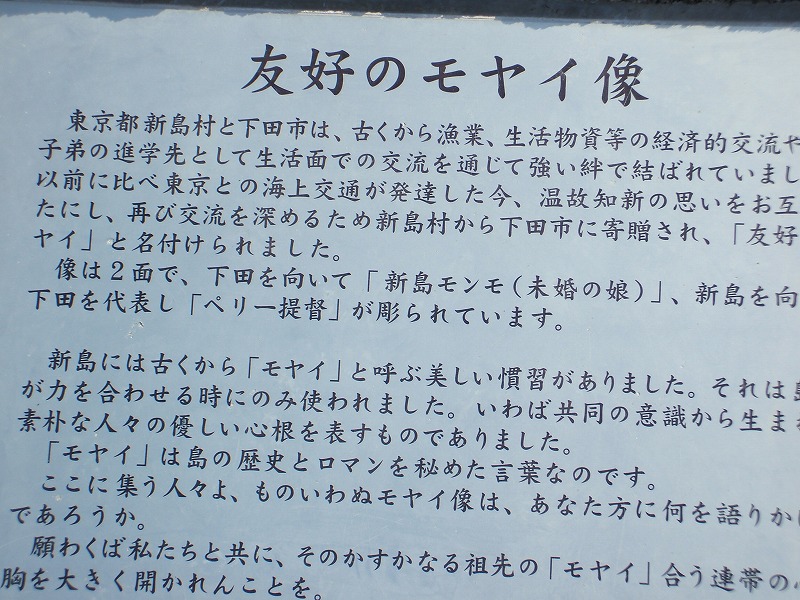 友好のモヤイ像
東京都新島村と下田市は、古くから漁業、生活物資等の経済的交流や
子弟の進学先として生活面での交流を通じて強い絆で結ばれていまし
以前に比べ東京との海上交通が発達した今、温故知新の思いをお互
たにし、再び交流を深めるため新島村から下田市に寄贈され、「友好
ヤイ」と名付けられました。
像は2面で、下田を向いて「新島モンモ(未婚の娘)」、新島を向
下田を代表し「ペリー提督」が彫られています。
新島には古くから「モヤイ」と呼ぶ美しい慣習がありました。それは島
が力を合わせる時にのみ使われました。いわば共同の意識から生まれ
素朴な人々の優しい心根を表すものでありました。
「モヤイ」は島の歴史とロマンを秘めた言葉なのです。
ここに集う人々よ、ものいわぬモヤイ像は、あなた方に何を語りかけ
であろうか。
願わくば私たちと共に、そのかすかなる祖先の「モヤイ」合う連帯の心
胸を大きく開かれんことを。